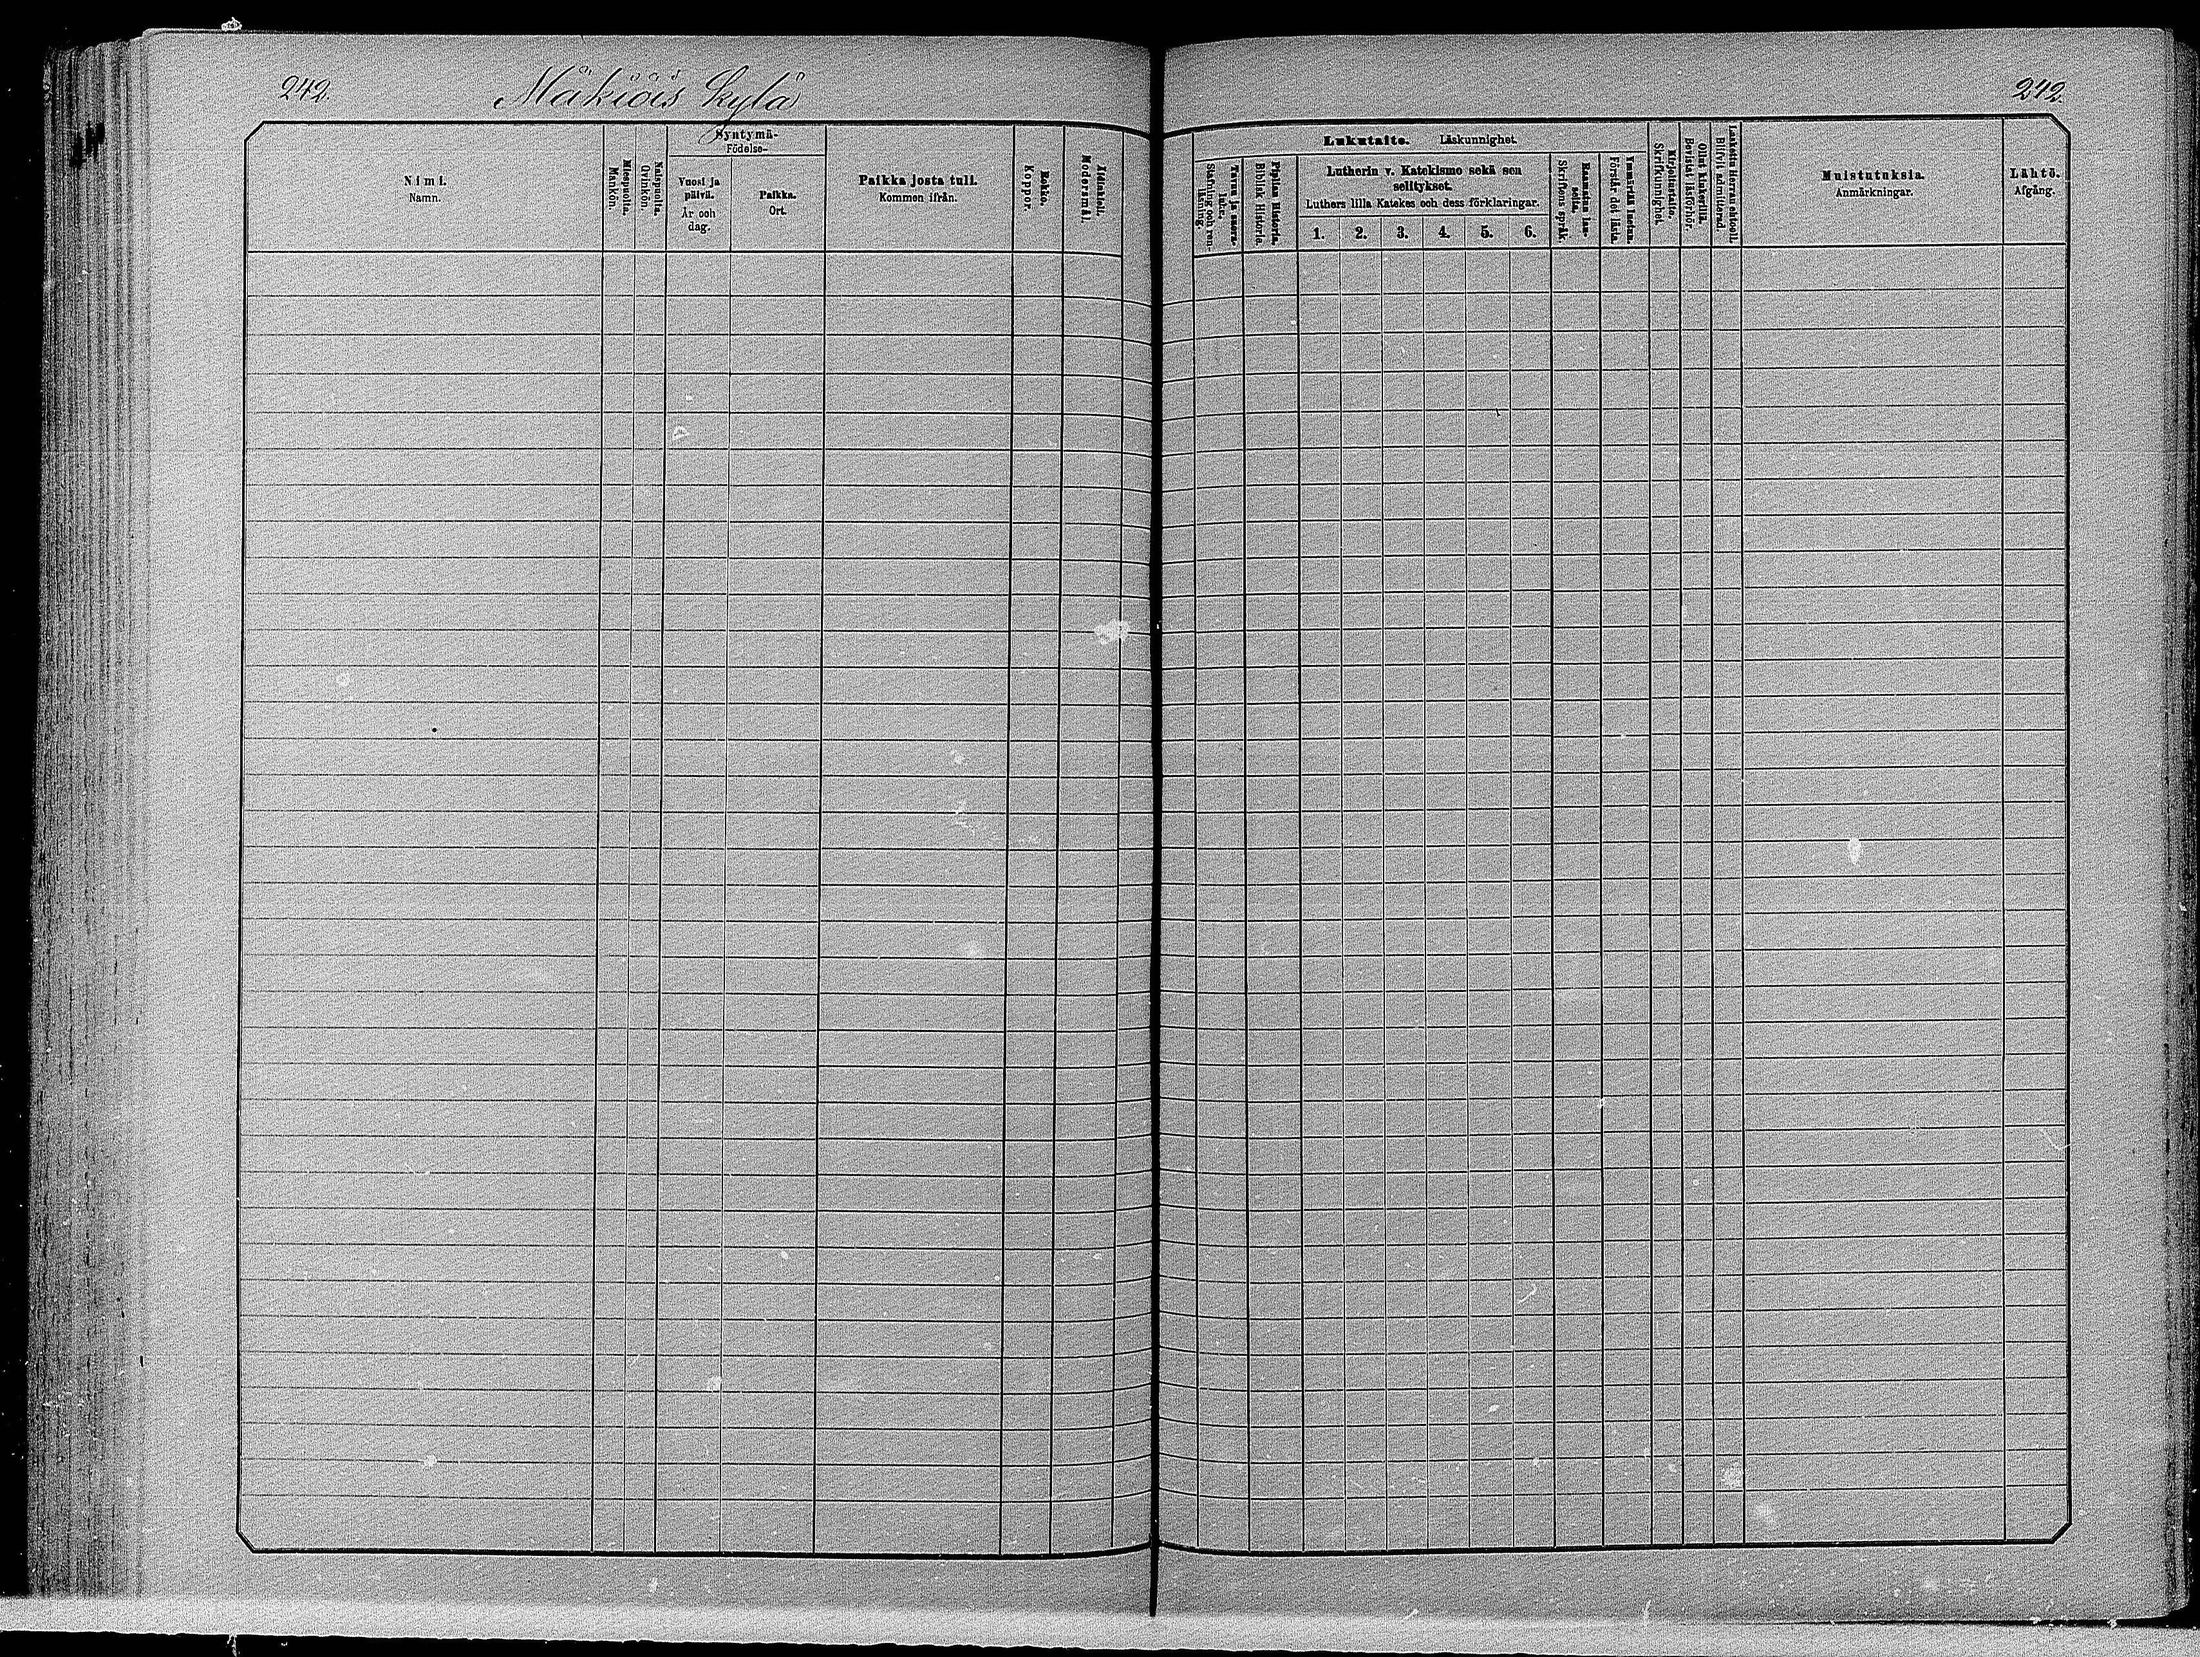 242.
Mäkiöis Kylä
Nimi.
Namn.
Miespuolia.
Mankön.
Naispuolia.
Qvinkön.
Syntymä-
Födelse-
Vuosi ja
päivä.
År och
dag.
Paikka.
Ort.
Paikka josta tuli.
Kommen ifrån.
Rokko.
Koppor.
Äidinkieli.
Modersmål.
242.
Lukutaito. Läskunnighet.
Tavuu ja suora-
luku.
Stafning och ren-
läsning.
Piplian Historia.
Biblisk Historia.
Lutherin v. Katekismo sekä sen
selitykset.
Luthers lilla Katekes och dess förklaringar.
1. 2. 3. 4. 5. 6.
Raamatun lau-
seita.
Skriftens språk.
Ymmärtää luetun.
Förstår det lästa.
Kirjoitustaito.
Skrifkunnighet.
Ollut kinkerillä.
Bevistat läsförhör.
Laskettu Herran ehtooll.
Blifvit admitterad.
Muistutuksia.
Anmärkningar.
Lähtö.
Afgång.